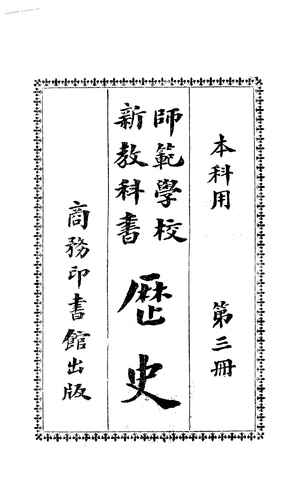 本科用 第三冊
師範學校
新教科書
歷史
商務印書館出版